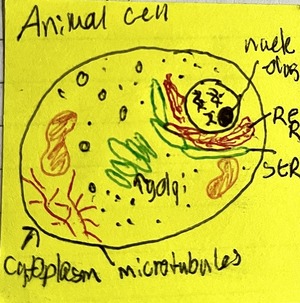 Animal cell
nucle
olus
RE
R
SER
golgi
Cytoplasm microtubules